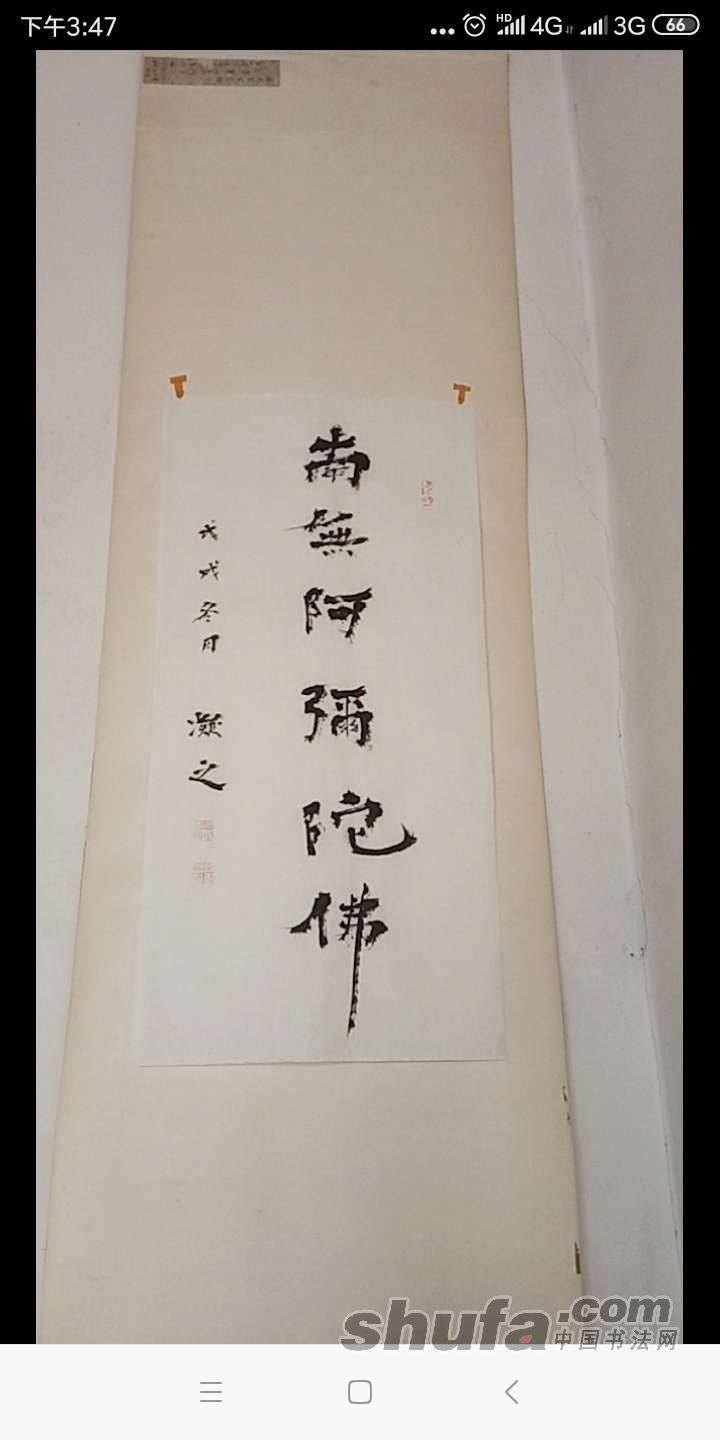 下午3:47
HD 4G 3G 66
南無阿彌陀佛
戊戌冬月 凝之
shufa.com
中国书法网